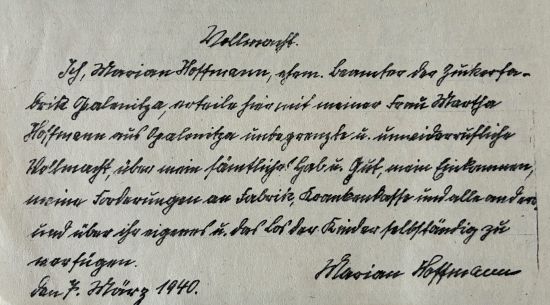 Vollmacht.
Ich, Marian Hoffmann, ehem. Beamter der Zuckerfa-
brik Opalenitza, erteile hiermit meiner Frau Martha
Hoffmann aus Opalenitza unbegrenzte u. unwiderrufliche
Vollmacht, über mein sämtliches Hab u. Gut, mein Einkommen,
meine Forderungen an Fabrik, Krankenkasse und alle andern
und über ihr eigenes u. das Los der Kinder selbständig zu
verfügen.
den 7. März 1940.
Marian Hoffmann